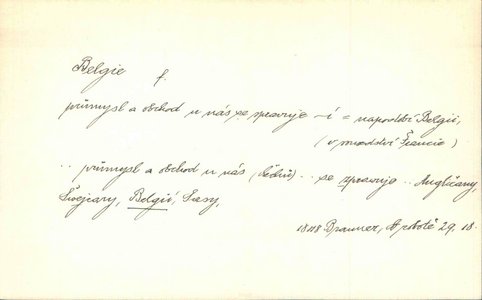 Belgie f.
průmysl a obchod u nás se spravuje –í = napodobí Belgii,
(v množství Francie)
.. průmysl a obchod u nás (Čechů) .. se spravuje .. Angličany,
Švejcary, Belgií, Sasy,
1848 Brauner, O robotě 29, 18.